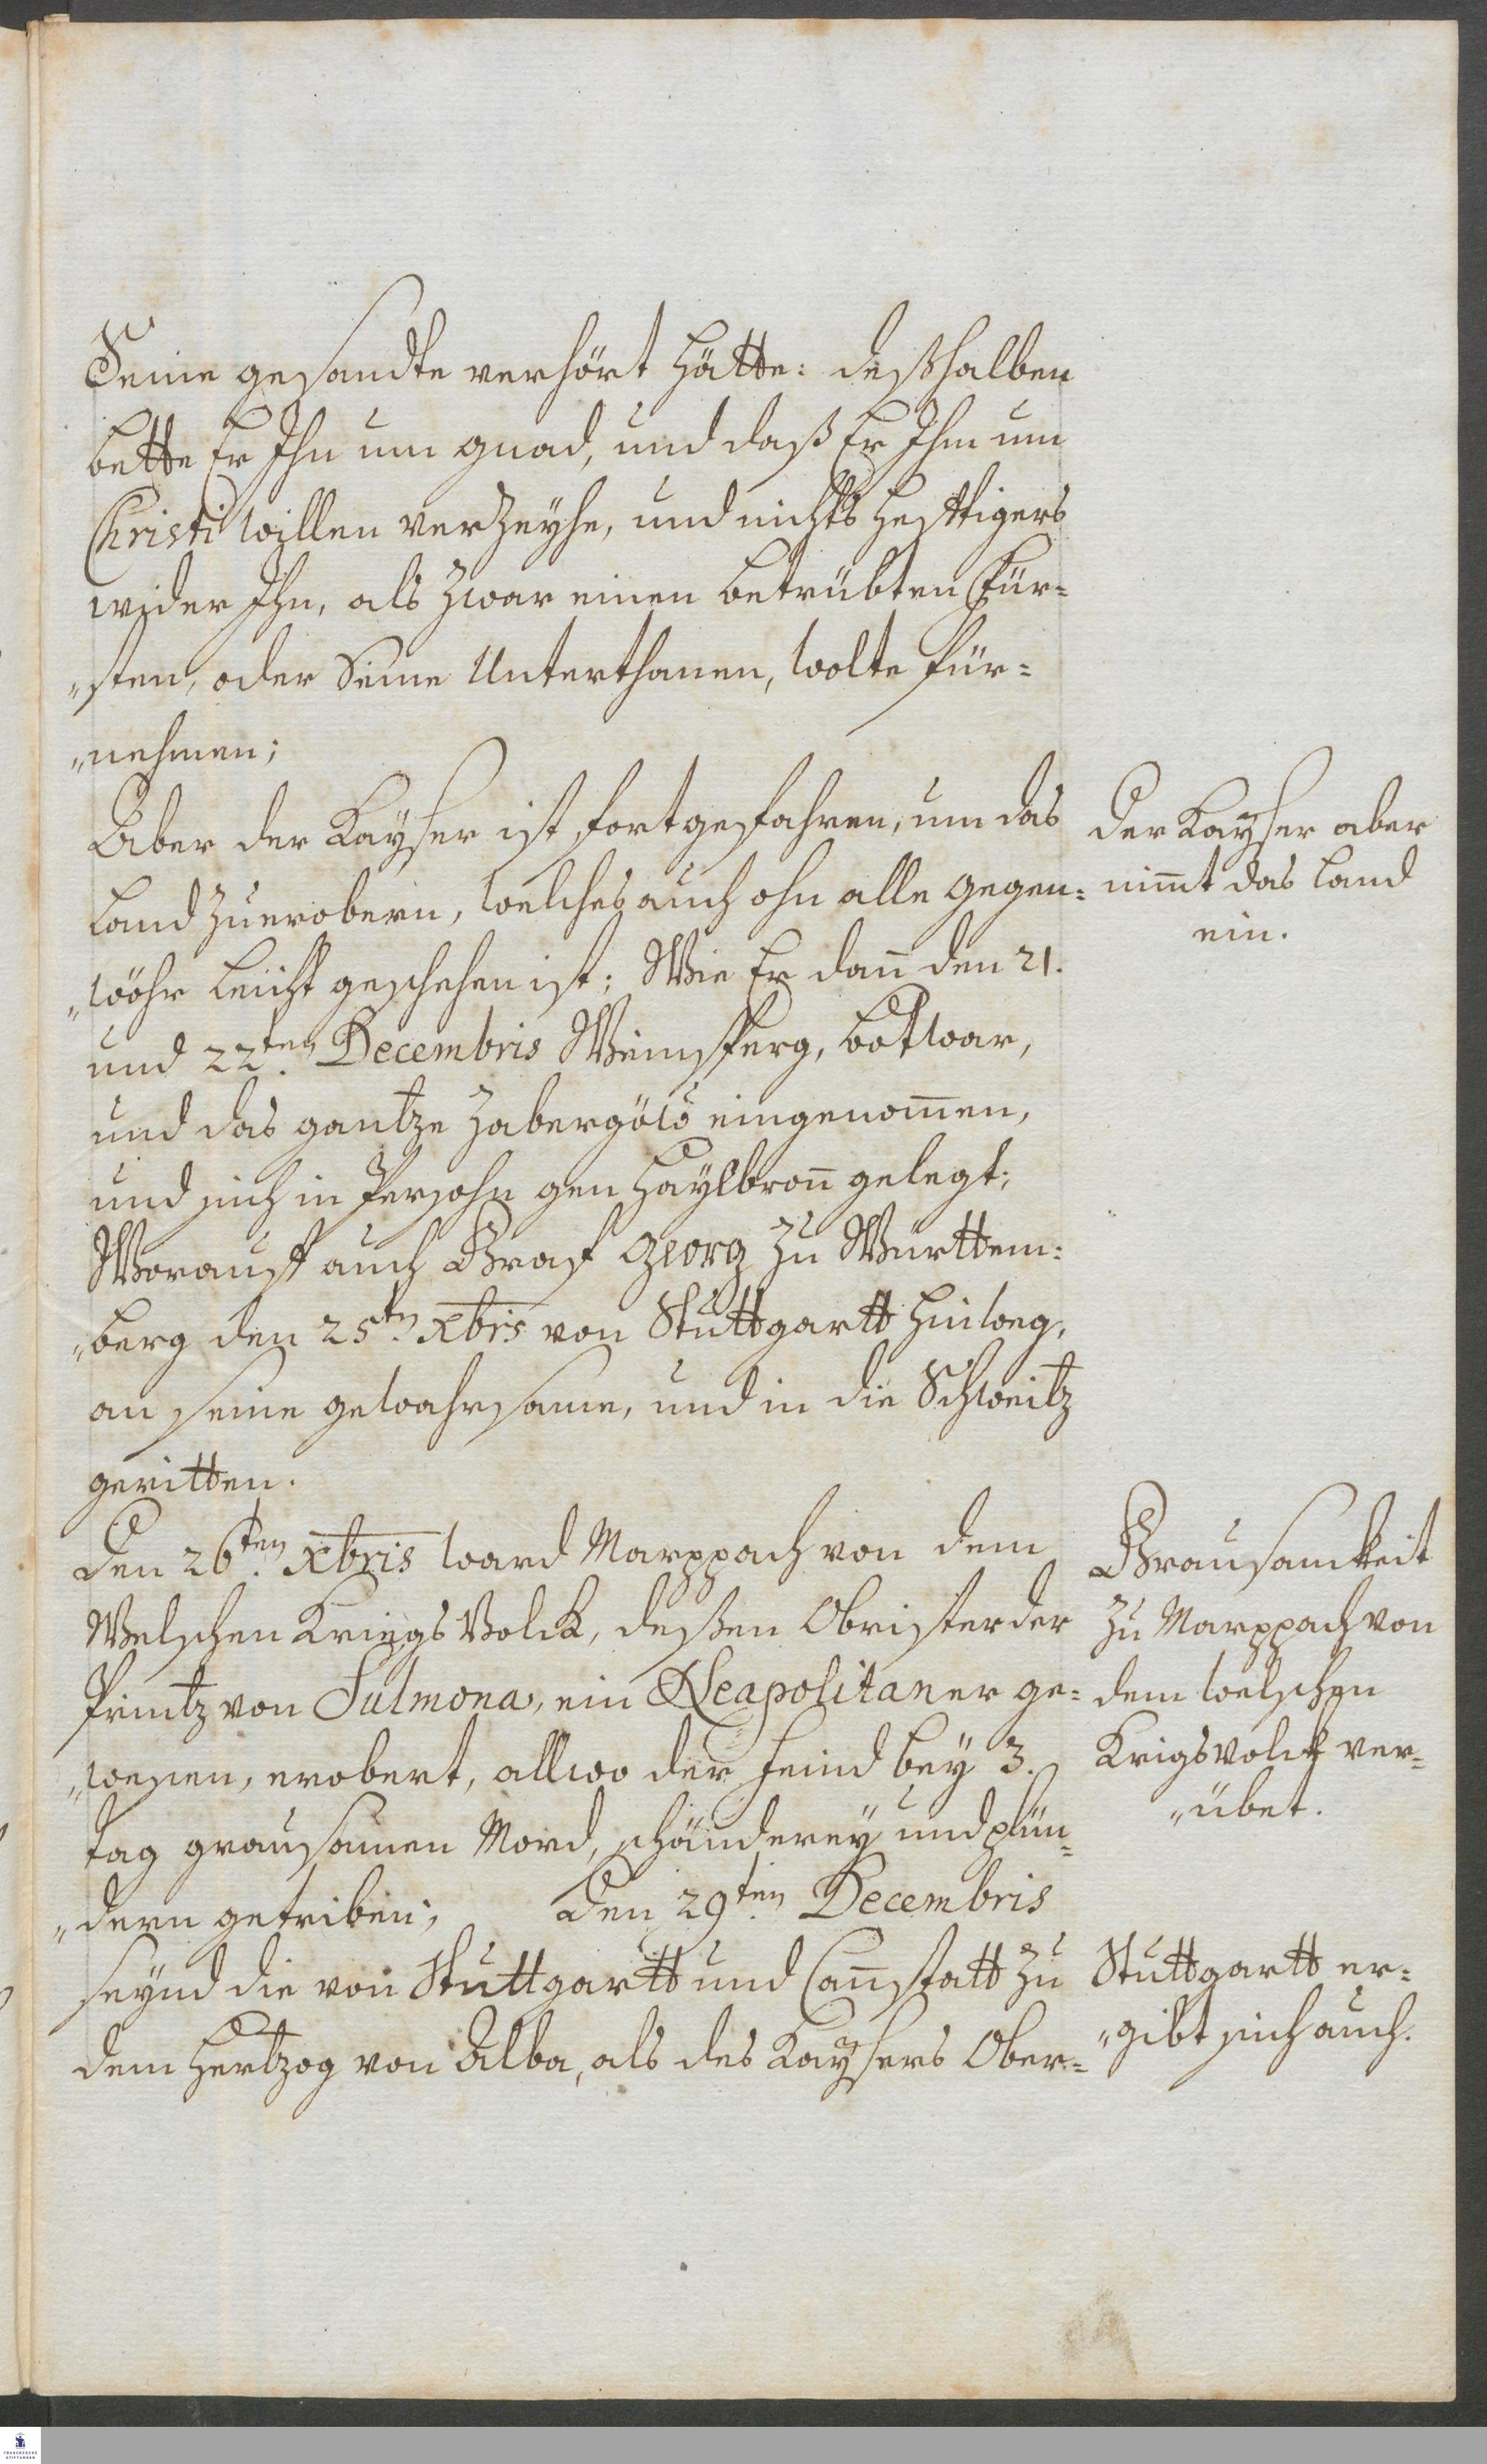 Seine gesandte verhört hätte: deßhalben
bette Er Ihn um gnad, und daß Er Ihm um
Christi willen verzeyhe, und nichts hefftigers
wider Ihn, als zwar einen betrübten Für=
„sten, oder Seine Unterthanen, wolte für=
„nehmen;
Aber der Kayser ist fortgefahren, um das
Land zuerobern, welches auch ohn alle gegen=
„wöhr leücht geschehen ist; Wie Er dan̄ den 21.
und 22.ten Decembris Weinsperg, bottwar,
und das gantze Zabergöw eingenom̄en,
und sich in Persohn gen Haylbron̄ gelegt;
Worauff auch Graf Georg zu Württem=
„berg den 25.tn xbris von Stuttgartt hinweg,
an seine gewahrsame, und in die Schweitz
geritten.
Den 26.ten xbris ward Marppach von dem
Welschen Kriegs Volck, deßen Obrister der
Printz von Sulmona, ein Neapolitaner ge=
„wesen, erobert, allwo der feind bey 3.
tag grausamen Mord, schänderey und plün=
„dern getriben; Den 29.ten Decembris
seynd die von Stuttgartt und Can̄statt zu
dem Hertzog von Alba, als des Kaysers Ober=
Der Kayser aber
nim̄t das Land
ein.
Grausamkeit
zu Marppach von
dem welschen
Krigsvolck ver=
„übet.
Stuttgartt er=
„gibt sich auch.
FRANCKESCHE
STIFTUNGEN